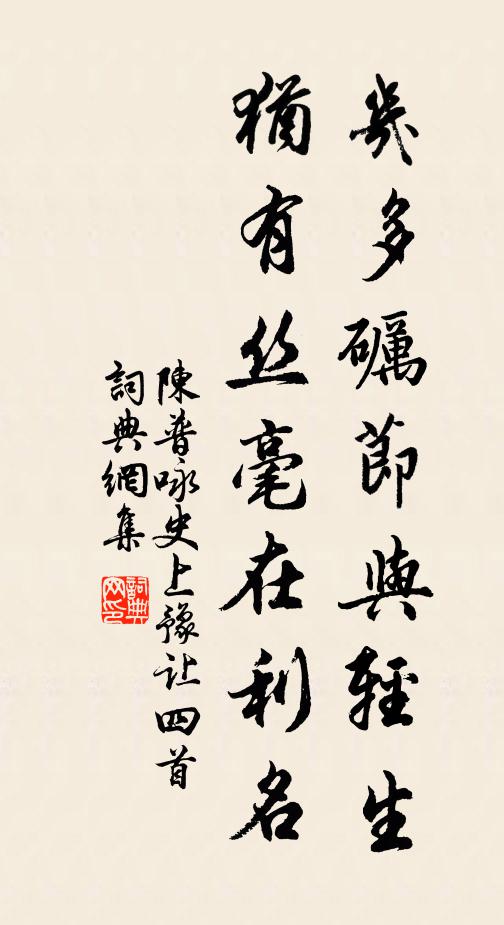 幾多礪節與輕生
猶有丝毫在利名
陳普咏史上豫让四首
詞典網集
詞典网印